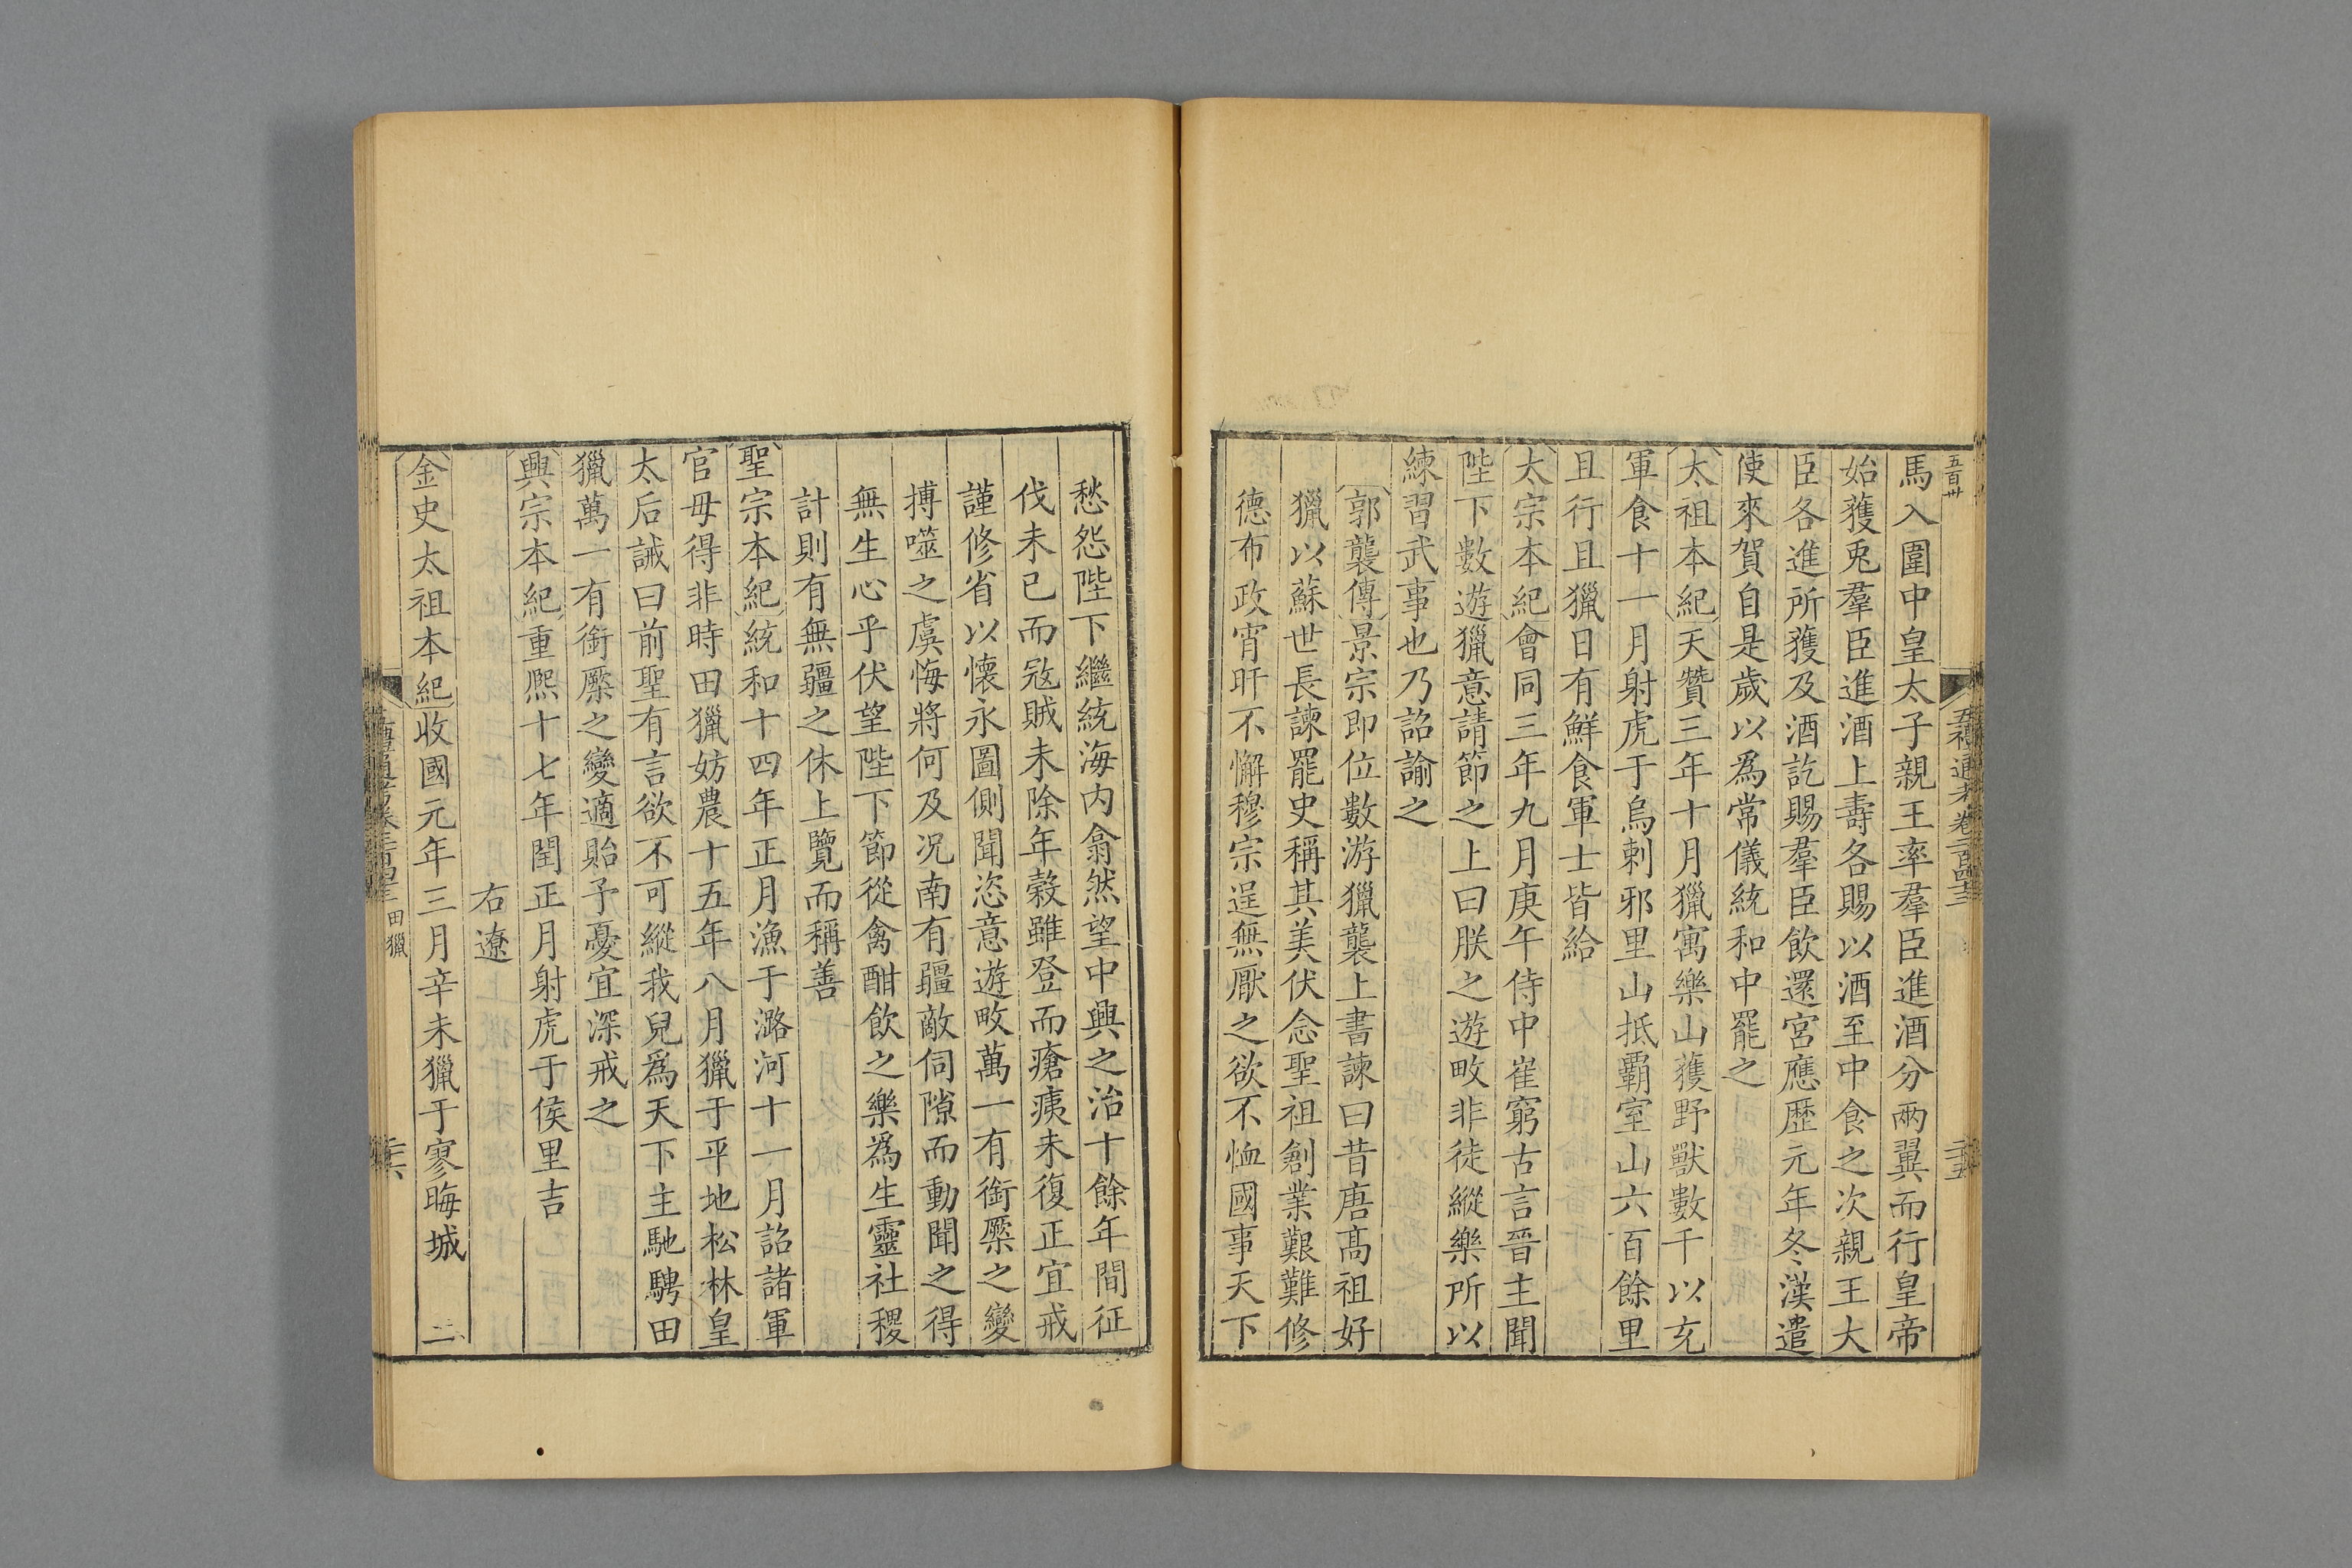 五百卅
五禮通考卷二百四十三
二十五
馬入圍中皇太子親王率羣臣進酒分兩翼而行皇帝
始獲兎羣臣進酒上壽各賜以酒至中食之次親王大
臣各進所獲及酒訖賜羣臣飲還宮應歷元年冬漢遣
使來賀自是歲以爲常儀統和中罷之
太祖本紀天贊三年十月獵寓樂山獲野獸數千以充
軍食十一月射虎于烏剌邪里山抵霸室山六百餘里
且行且獵日有鮮食軍士皆給
太宗本紀會同三年九月庚午侍中崔窮古言晉主聞
陛下數遊獵意請節之上曰朕之遊畋非徒縱樂所以
練習武事也乃詔諭之
郭襲傳景宗即位數游獵襲上書諫曰昔唐髙祖好
獵以蘇世長諫罷史稱其美伏念聖祖創業艱難修
德布政宵旰不懈穆宗逞無厭之欲不恤國事天下
愁怨陛下繼統海内翕然望中興之治十餘年間征
伐未已而宼賊未除年榖雖登而瘡痍未復正宜戒
謹修省以懷永圖側聞恣意遊畋萬一有銜橜之變
搏噬之虞悔將何及况南有疆敵伺隙而動聞之得
無生心乎伏望陛下節從禽酣飲之樂爲生靈社稷
計則有無疆之休上覽而稱善
聖宗本紀統和十四年正月漁于潞河十一月詔諸軍
官毋得非時田獵妨農十五年八月獵于平地松林皇
太后誡曰前聖有言欲不可縱我兒爲天下主馳騁田
獵萬一有銜橜之變適貽予憂宜深戒之
興宗本紀重熈十七年閏正月射虎于侯里吉
右遼
金史太祖本紀收國元年三月辛未獵于寥晦城 二
田獵
二十六